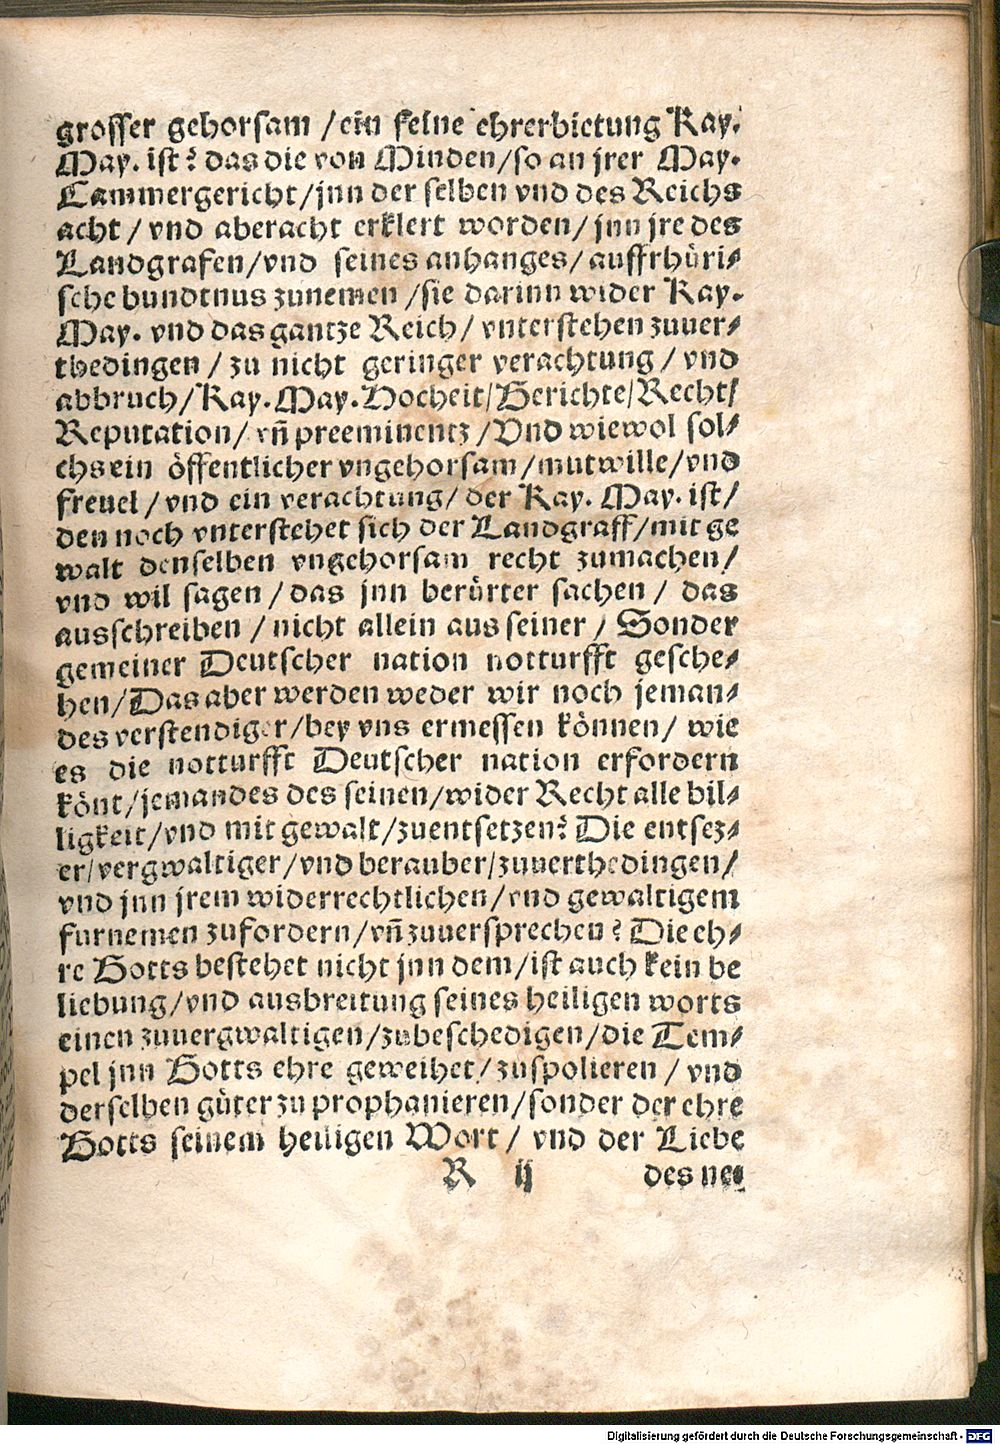 grosser gehorsam /ein feine ehrerbietung Kay.
May. ist? das die von Minden/so an jrer May.
Cammergericht/jnn der selben vnd des Reichs
acht / vnd aberacht erklert worden/ jnn jre des
Landgrafen/vnd seines anhanges/ auffrhüri⸗
sche bundtnus zunemen /sie darinn wider Kay.
May. vnd das gantze Reich/ vnterstehen zuuer⸗
thedingen / zu nicht geringer verachtung / vnd
abbruch/Kay. May. Hocheit/Gerichte/Recht/
Reputation/ vñ preeminentz /Vnd wiewol sol⸗
chs ein öffentlicher vngehorsam/mutwille/vnd
freuel / vnd ein verachtung/ der Kay. May. ist/
den noch vnterstehet sich der Landgraff/mit ge
walt denselben vngehorsam recht zumachen/
vnd wil sagen / das jnn berürter sachen / das
ausschreiben / nicht allein aus seiner / Sonder
gemeiner Deutscher nation notturfft gesche⸗
hen/Das aber werden weder wir noch jeman⸗
des verstendiger/bey vns ermessen können/ wie
es die notturfft Deutscher nation erfordern
könt/jemandes des seinen/wider Recht alle bil⸗
ligkeit/vnd mit gewalt/zuentsetzen? Die entsez⸗
er/vergwaltiger/vnd berauber/zuuerthedingen/
vnd jnn jrem widerrechtlichen/vnd gewaltigem
furnemen zufordern/vñ zuuersprechen? Die eh⸗
re Gotts bestehet nicht jnn dem/ist auch kein be
liebung/vnd ausbreitung seines heiligen worts
einen zuuergwaltigen/zubeschedigen/die Tem⸗
pel jnn Gotts ehre geweihet/ zuspolieren / vnd
derselben güter zu prophanieren/sonder der ehre
Gotts seinem heiligen Wort / vnd der Liebe
R ij des ne⸗
Digitalisierung gefördert durch die Deutsche Forschungsgemeinschaft - DFG